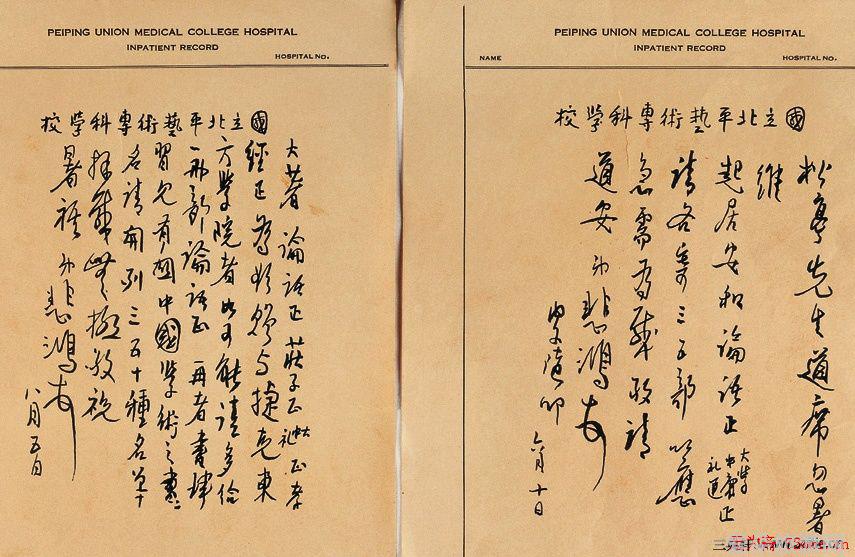 PEIPING UNION MEDICAL COLLEGE HOSPITAL
INPATIENT RECORD
NAME
HOSPITAL NO.
國立北平藝術專科學校
松亭先生道席忽暑
維
起居安和論語正
大學
中庸正
礼運
請各寄三五部以應
急需為感敬請
道安弟悲鴻
六月十日
PEIPING UNION MEDICAL COLLEGE HOSPITAL
INPATIENT RECORD
HOSPITAL NO.
國立北平藝術專科學校
大著論語正莊子正正孝
經正為贈與捷克東
方學院者如可能請多給
一兩部論語正再者書肆
習見有關中國學術之書
名請開列三五十種名單
拜感無極敬祝
暑祺弟悲鴻
八月五日